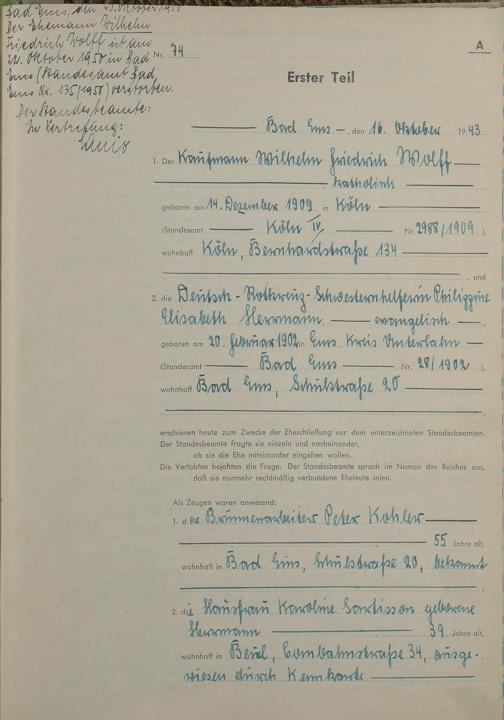 Bad Ems, den 23. Oktober 1950
Der Ehemann Wilhelm
Friedrich Wolff ist am
22. Oktober 1950 in Bad
Ems (Standesamt Bad
Ems Nr. 135/1950) verstorben.
Der Standesbeamte:
In Vertretung:
Nr. 74
A
Erster Teil
Bad Ems, den 16. Oktober 1943
1. Der Kaufmann Wilhelm Friedrich Wolff
katholisch
geboren am 14. Dezember 1909 in Köln
(Standesamt Köln IV Nr. 2988/1909),
wohnhaft Köln, Bernhardstraße 134
, und
2. die Deutsch-Rotkreuz-Schwesternhelferin Philippine
Elisabeth Herrmann, evangelisch
geboren am 20. Februar 1902 in Ems, Kreis Unterlahn
(Standesamt Bad Ems Nr. 28/1902),
wohnhaft Bad Ems, Schulstraße 20
erschienen heute zum Zwecke der Eheschließung vor dem unterzeichneten Standesbeamten.
Der Standesbeamte fragte sie einzeln und nacheinander,
ob sie die Ehe miteinander eingehen wollen.
Die Verlobten bejahten die Frage. Der Standesbeamte sprach im Namen des Reiches aus,
daß sie nunmehr rechtmäßig verbundene Eheleute seien.
Als Zeugen waren anwesend:
1. der Brunnenarbeiter Peter Kohler
55 Jahre alt,
wohnhaft in Bad Ems, Schulstraße 20, bekannt
2. die Hausfrau Karoline geborene
Herrmann 39 Jahre alt,
wohnhaft in Beuel, Combahnstraße 34, ausge-
wiesen durch Kennkarte